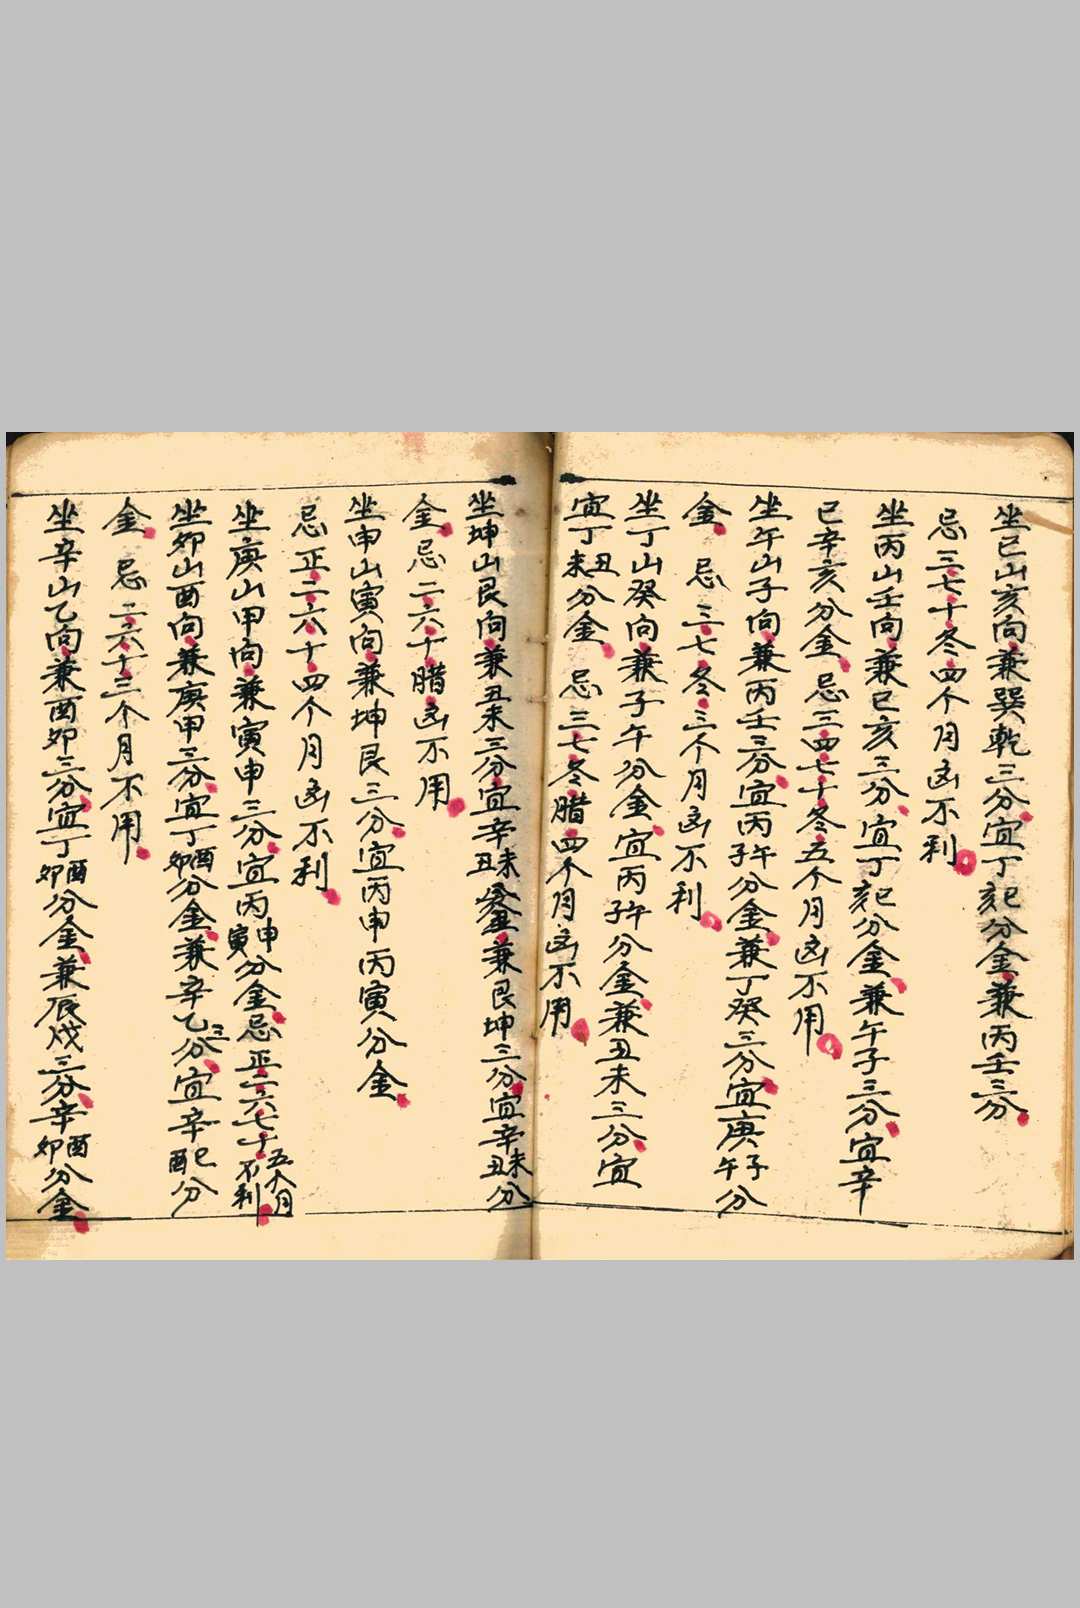 坐巳山亥向兼巽乾三分宜丁亥巳分金兼丙壬三分
忌三七十冬四个月凶不利
坐丙山壬向兼巳亥三分宜丁亥巳分金兼午子三分宜辛
巳辛亥分金忌三四七十冬五个月凶不用
坐午山子向兼丙壬三分宜丙子午分金兼丁癸三分宜庚午子分
金忌三七冬三个月凶不利
坐丁山癸向兼子午分金宜丙子午分金兼丑未三分宜
宜丁未丑分金忌三七冬腊四个月凶不用
坐坤山艮向兼丑未三分宜辛丑未兼艮坤三分宜辛丑未分
金忌二六十腊凶不用
坐申山寅向兼坤艮三分宜丙申丙寅分金
忌正二六十四个月凶不利
坐庚山甲向兼寅申三分宜丙寅申分金忌正二六七十五个月不利
坐卯山酉向兼庚甲三分宜丁卯酉分金兼辛乙三分宜辛酉巳分
金忌二六十三个月不用
坐辛山乙向兼酉卯三分宜丁卯酉分金兼辰戌三分辛卯酉分金